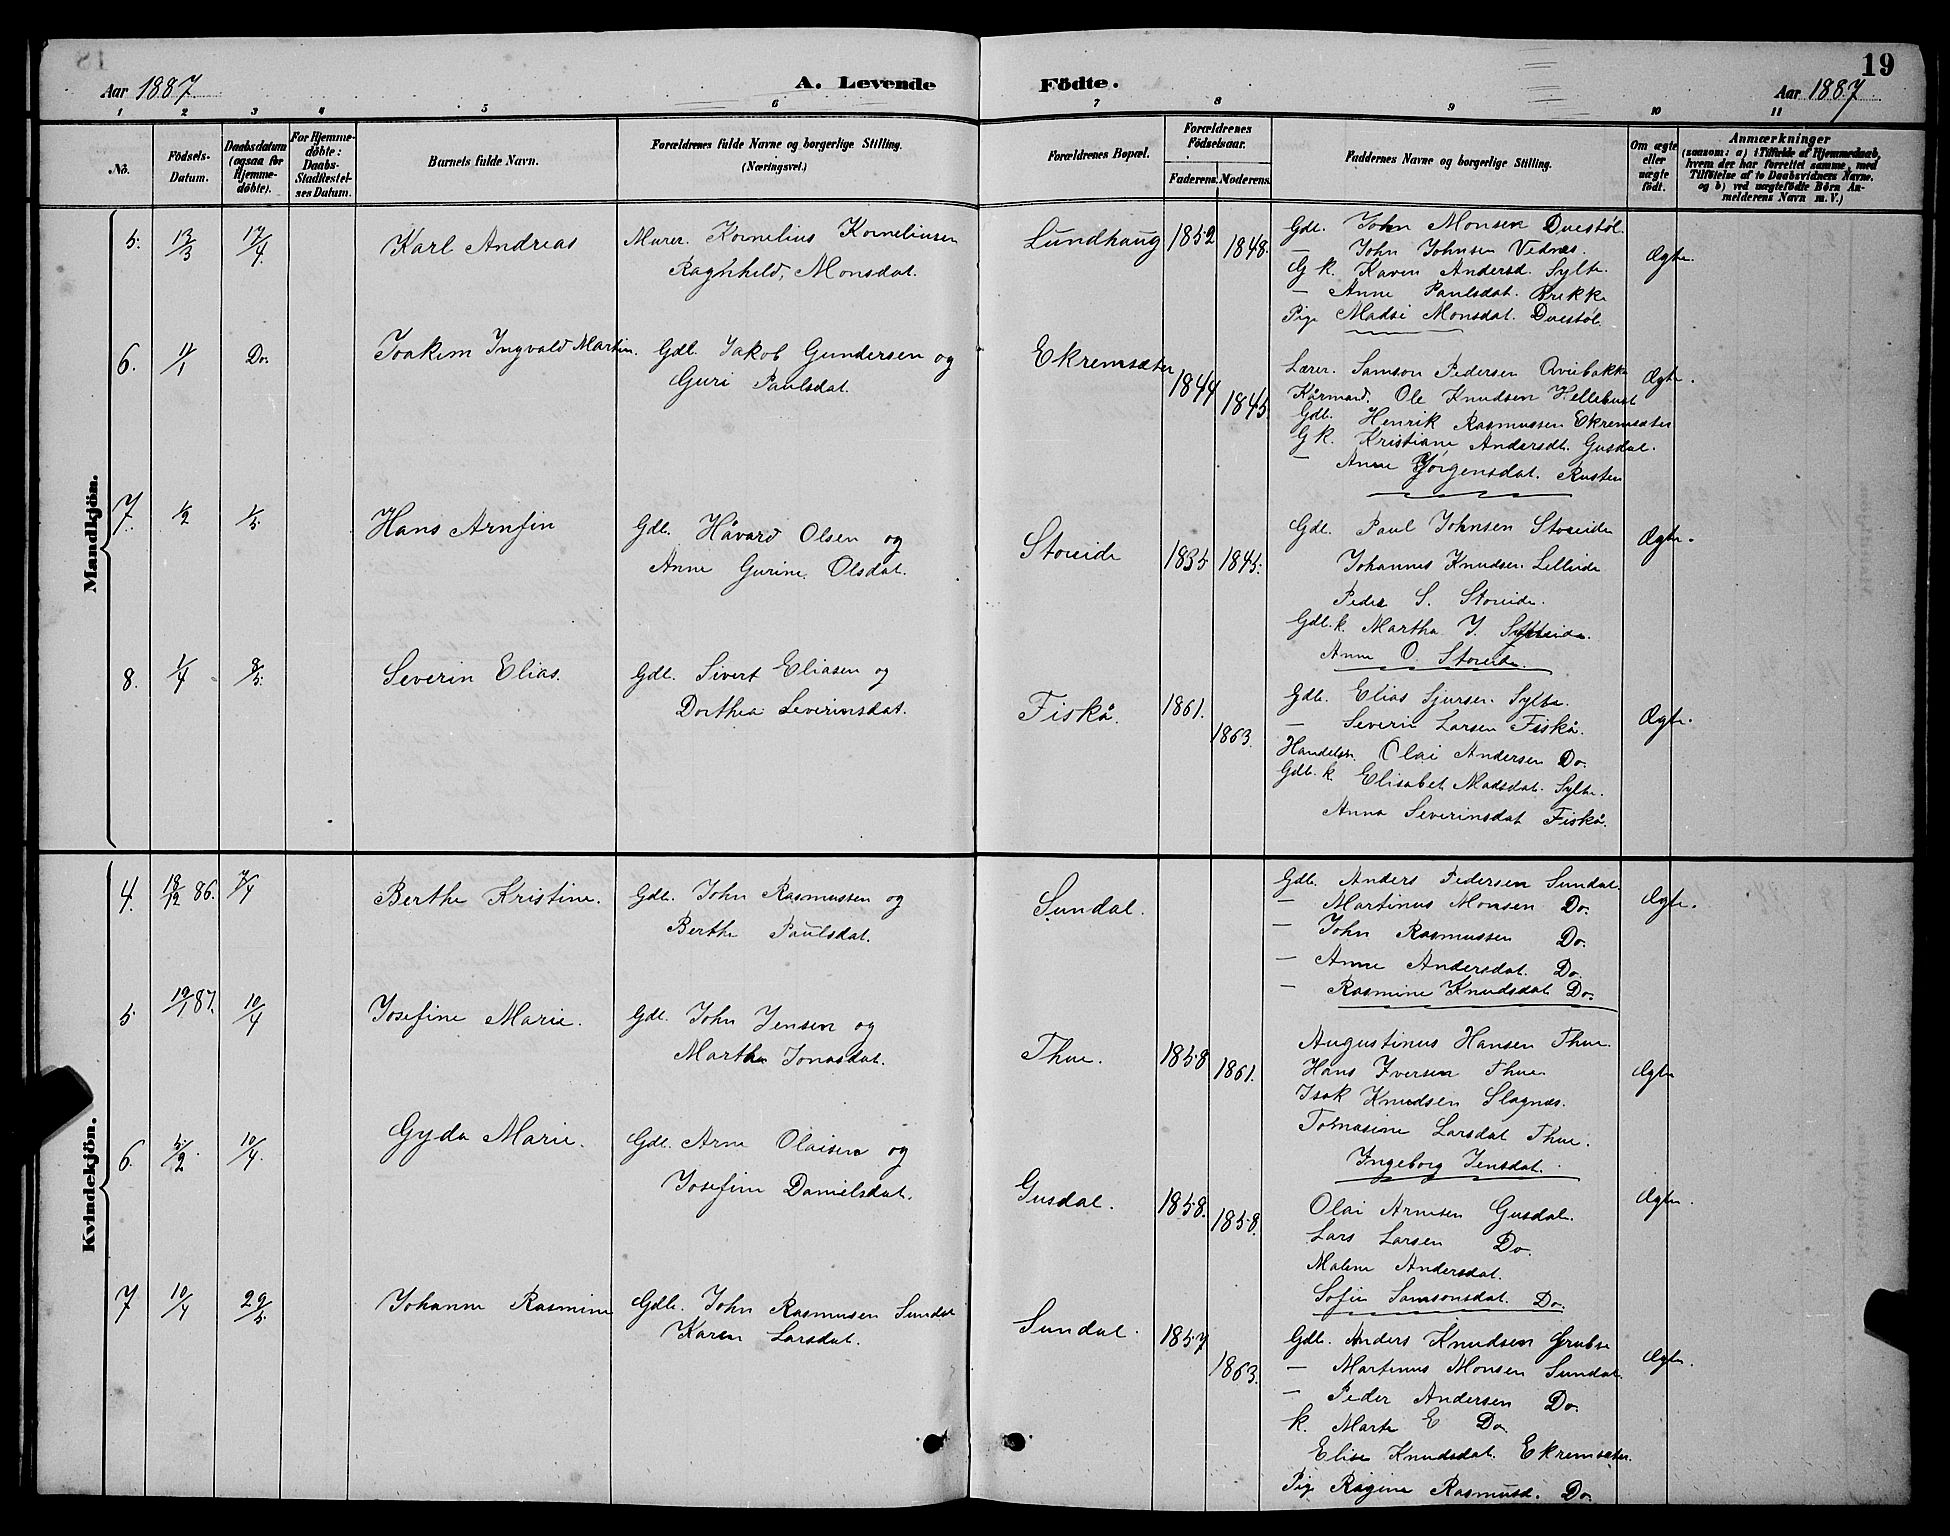 18
19
Aar 1887
A. Levende Födte.
Aar 1887
1 2 3 4 5 6 7 8 9 10 11
No.
Födsels-Datum.
Daabsdatum (ogsaa for Hjemme-döbte).
For Hjemme-döbte: Daabs-Stadfæstel-ses Datum.
Barnets fulde Navn.
Forældrenes fulde Navne og borgerlige Stilling. (Næringsvei.)
Forældrenes Bopæl.
Forældrenes Födselsaar.
Faderens. Moderens.
Faddernes Navne og borgerlige Stilling.
Om ægte eller uægte födt.
Anmærkninger
(saasom: a) i Tilfælde af Hjemmedaab, hvem der har forrettet samme, med Tilföielse af to Daabsvidners Navne. og b) ved uægtefödte Börn An-melderens Navn m. V.)
Mandkjön.
5. 13/3 17/4 Karl Andreas
Murer. Kornelius Korneliusen
Ragnhild, Monsdat.
Lundhaug 1852 1848.
Gdb. John Monsen Duestöl.
— John Johnsen Vednæs.
G k. Karen Andersd. Sylte.
— Anne Paulsdat. Brekke
Pige Madsi Monsdat. Duestöl.
Ægte.
6. 11/1 Do. Joakim Ingvald Martin.
Gdb. Jakob Gundersen og
Guri Paulsdat.
Ekremsæter 1844 1845.
Lærer. Samson Pedersen Qvibakke
Kårmand. Ole Knudsen Hellebust
Gdb. Henrik Rasmussen Ekremsæter
G k. Kristiane Andersdt. Gusdal.
— Anne Jörgensdat. Rusten
Ægte.
7. 1/2 1/5. Hans Arnfin
Gdb. Håvard Olsen og
Anne Gurine Olsdat.
Storeide 1835 1845.
Gdb. Paul Johnsen Storeide
Johannes Knudsen Lilleeide
Peder S. Storeide.
Gdb. k. Martha J. Sylteide.
Anne O. Storeide.
Ægte.
8. 1/4 8/5. Severin Elias.
Gdb. Sivert Eliasen og
Dorthea Severinsdat.
Fiskå. 1861. 1863.
Gdb. Elias Sjursen Sylte.
— Severin Larsen Fiskå.
Handelsm. Olai Andersen Do.
Gdb. k. Elisabet Madsdat. Sylte.
Anna Severinsdat Fiskå.
Ægte.
Kvindekjön.
4. 18/12 86. 7/4 Berthe Kristine.
Gdb. John Rasmussen og
Berthe Paulsdat.
Sundal.
Gdb. Anders Pedersen Sundal.
— Martinus Monsen Do.
— John Rasmussen Do.
— Anne Andersdat. Do.
— Rasmine Knudsdat Do.
Ægte.
5. 19/1 87. 10/4 Josefine Marie.
Gdb. John Jensen og
Marthe Jonasdat.
Thue. 1858 1861.
Augustinus Hansen Thue.
Hans Iversen Thue
Isak Knudsen Slagnæs.
Tomasine Larsdat Thue.
Ingeborg Jensdat.
Ægte
6. 5/2. 10/4. Gyda Marie.
Gdb. Arne Olaisen og
Josefine Danielsdat.
Gusdal. 1858. 1858.
Olai Arnesen Gusdal.
Lars Larsen Do.
Malene Andersdat.
Sofie Samsonsdat. Do.
Ægte.
7 10/4 29/5. Johanne Rasmine
Gdb. John Rasmusen Sundal
Karen Larsdat.
Sundal. 1857 1863.
Gdb. Anders Knudsen Grubse
— Martinus Monsen Sundal.
— Peder Andersen Do.
k. Marte E Do
Elise Knudsdat. Ekremsæter.
Pige Ragine Rasmusd. Do.
Ægte.